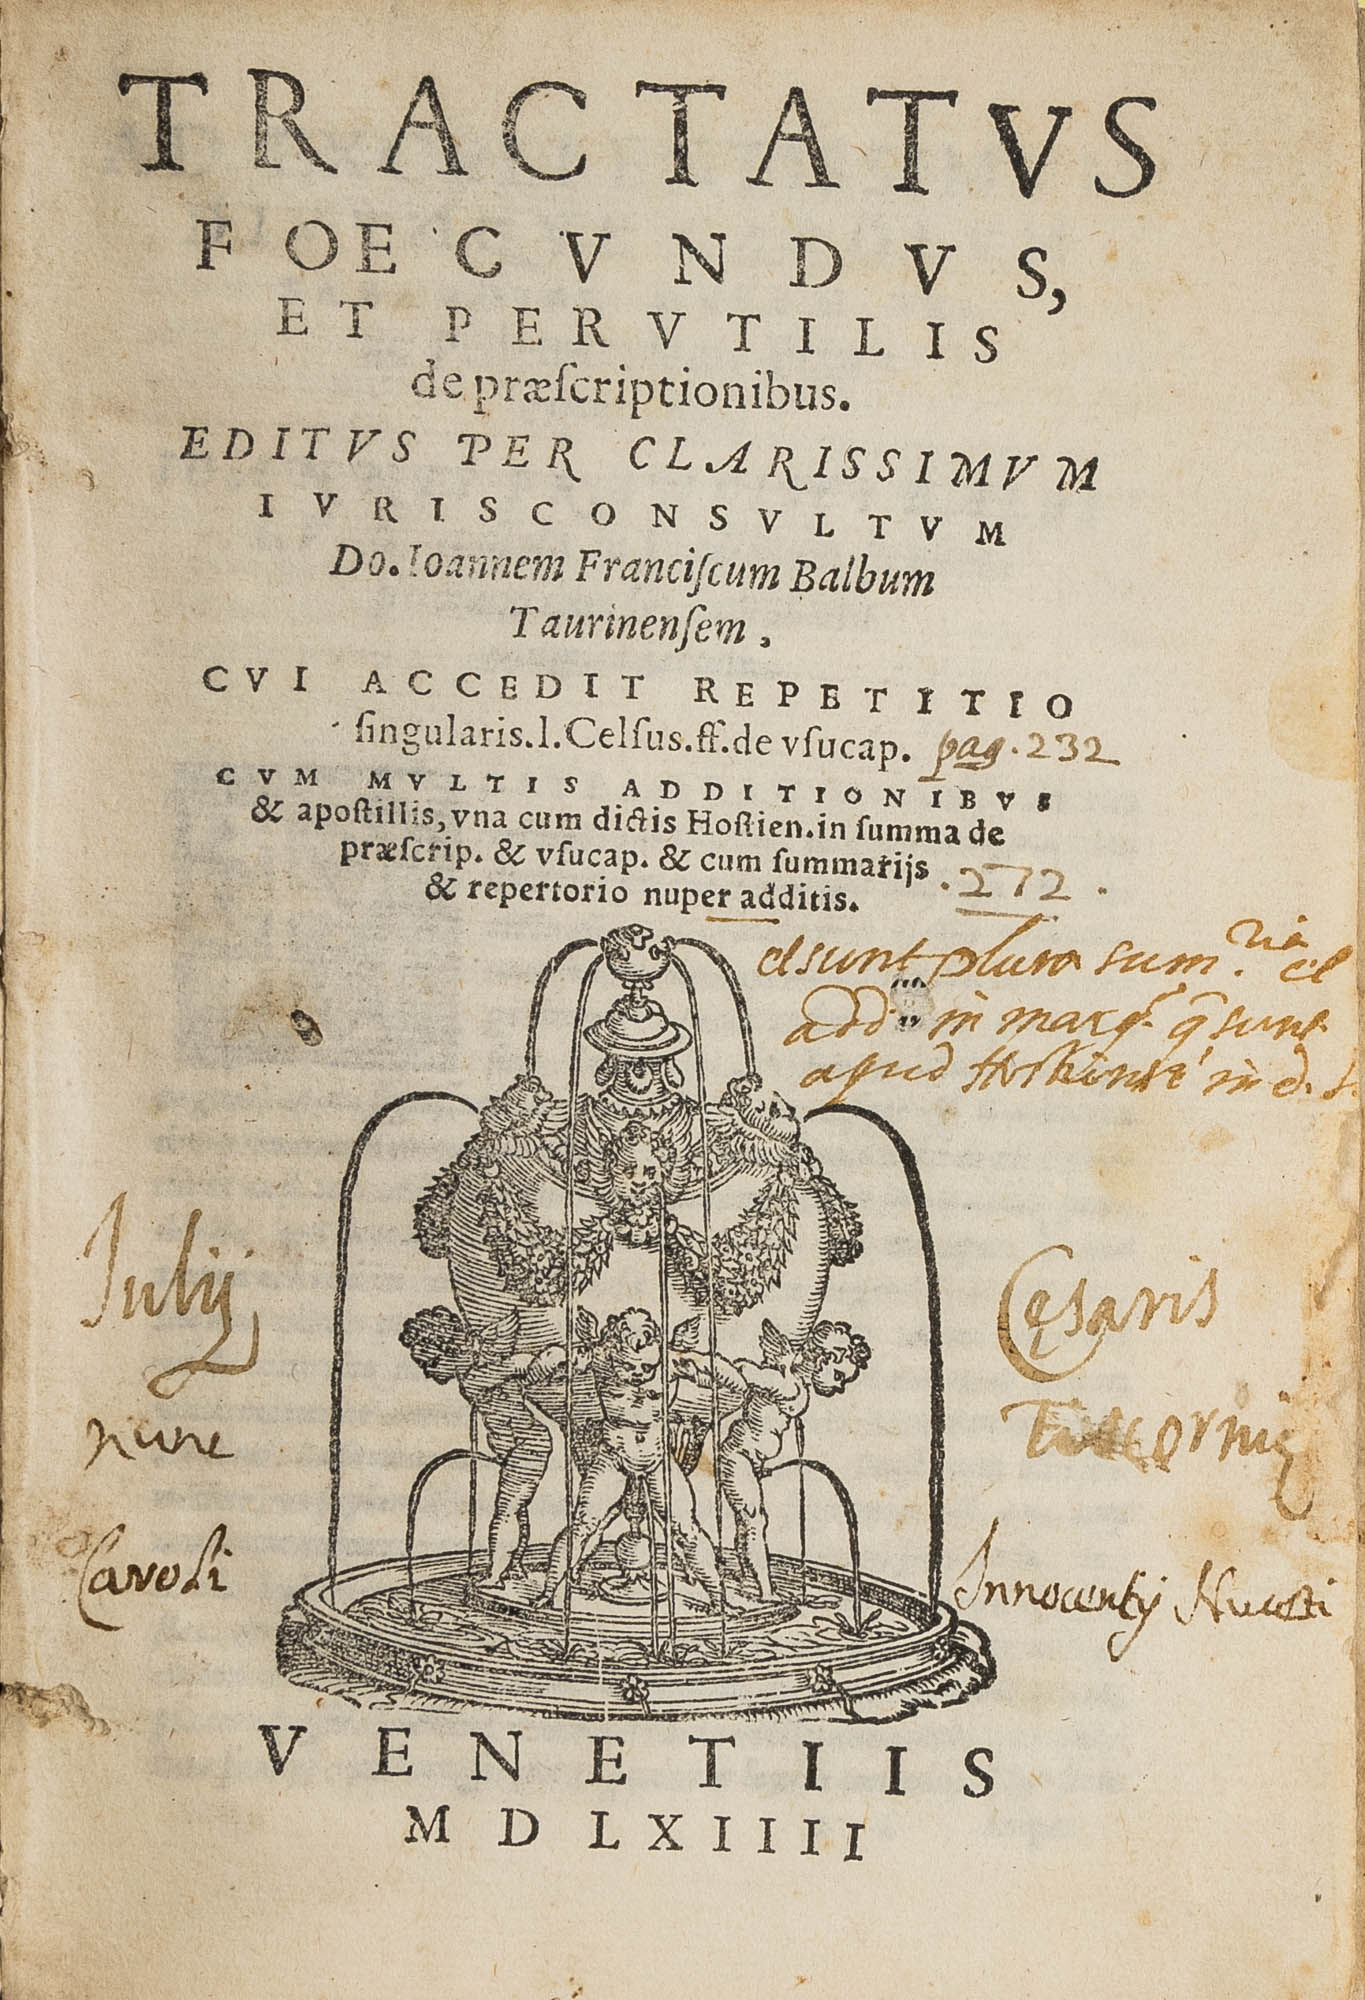 TRACTATVS
FOECVNDVS,
ET PERVTILIS
de præſcriptionibus.
EDITVS PER CLARISSIMVM
IVRISCONSVLTVM
Do. Ioannem Franciſcum Balbum
Taurinenſem.
CVI ACCEDIT REPETITIO
ſingularis.l.Celſus.ff.de vſucap. pag. 232
CVM MVLTIS ADDITIONIBVS
& apoſtillis, vna cum dictis Hoſtien. in ſumma de
præſcrip. & vſucap. & cum ſummarijs
& repertorio nuper additis. 272
sunt plura sum.ria
add in marg. sunt
apud in d.
Iulij Cęsaris
nunc
Caroli Innocentij
VENETIIS
MDLXIIII